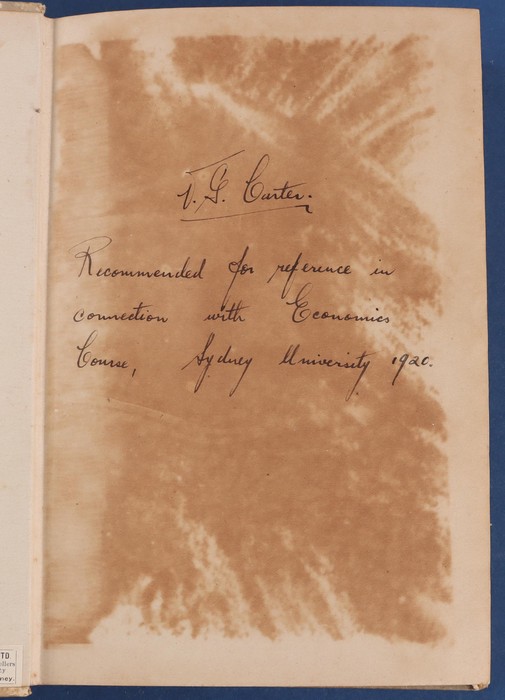 V. G. Carter.
Recommended for reference in
connection with Economics
Course, Sydney University 1920.
TD
llers
ney.